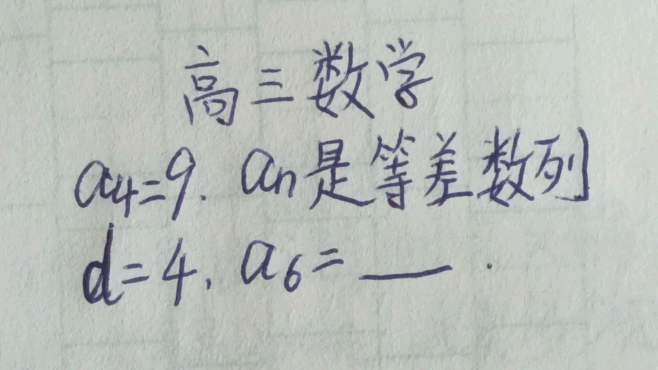 高三数学
a4=9. an是等差数列
d=4, a6=___.